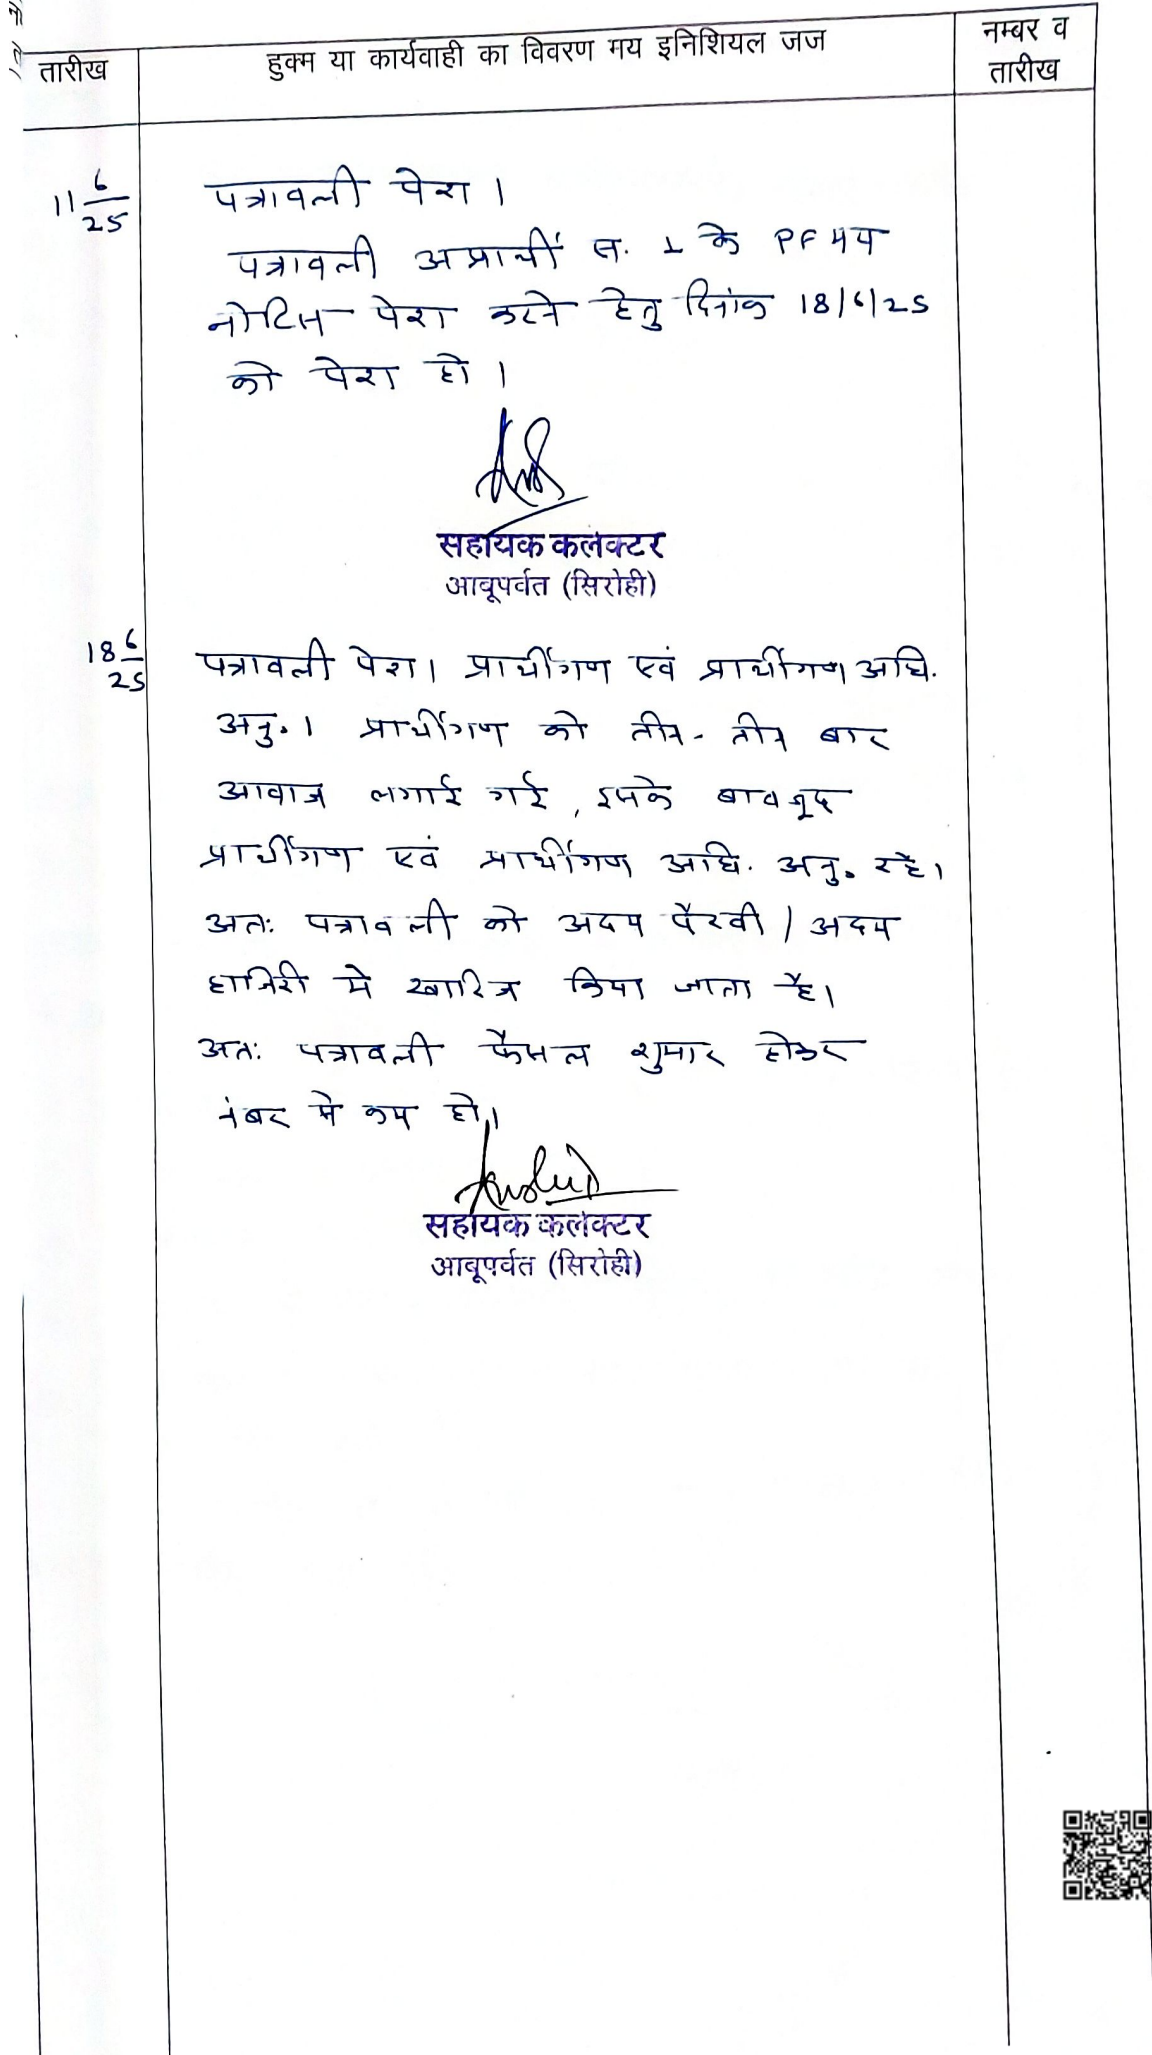 तारीख
हुक्म या कार्यवाही का विवरण मय इनिशियल जज
नम्बर व
तारीख
11 6/25
पत्रावली पेश ।
पत्रावली अप्रार्थी सं. 1 के PF मय
नोटिस पेश करने हेतु दिनांक 18/6/25
को पेश हो ।
सहायक कलक्टर
आबूपर्वत (सिरोही)
18 6/25
पत्रावली पेश। प्रार्थीगण एवं प्रार्थीगण अधि.
अनु.। प्रार्थीगण को तीन-तीन बार
आवाज लगाई गई, इसके बावजूद
प्रार्थीगण एवं प्रार्थीगण अधि. अनु. रहे।
अतः पत्रावली को अदम पैरवी / अदम
हाजिरी मे खारिज किया जाता है।
अतः पत्रावली फैसल शुमार होकर
नंबर मे कम हो।
सहायक कलक्टर
आबूपर्वत (सिरोही)